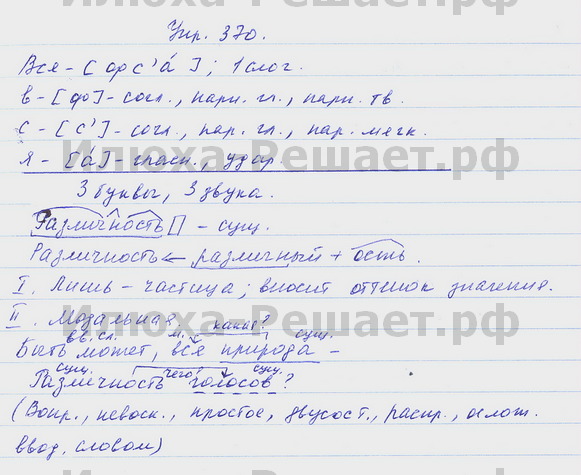 Илюха-Решает.рф
Упр. 370.
Вся - [фс'á]; 1 слог.
в - [ф] - согл., парн. гл., парн. тв.
с - [с'] - согл., пар. гл., пар. мягк.
я - [á] - гласн., удар.
Илюха-Решает.рф
3 буквы, 3 звука.
Различность - сущ.
Различность ← различный + ость.
I. Лишь - частица; вносит оттенок значения.
II. Модальная.
Илюха-Решает.рф
вв. сл. м. какая? сущ.
Быть может, вся природа -
сущ. чего? сущ.
Различность голосов?
(Вопр., невоск., простое, двусост., распр., ослож.
ввод. словом)
Илюха-Решает.рф